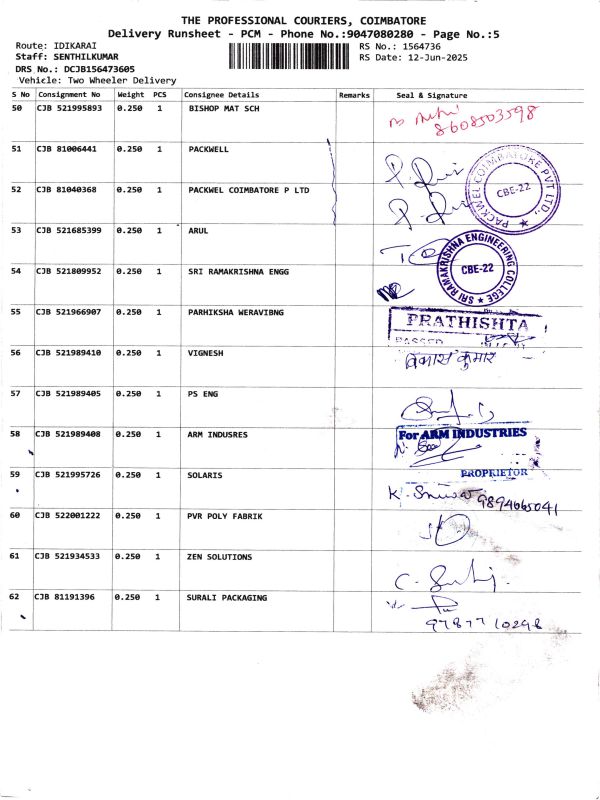 THE PROFESSIONAL COURIERS, COIMBATORE
Delivery Runsheet - PCM - Phone No.:9047080280 - Page No.:5
Route: IDIKARAI RS No.: 1564736
Staff: SENTHILKUMAR RS Date: 12-Jun-2025
DRS No.: DCJB156473605
Vehicle: Two Wheeler Delivery
S No Consignment No Weight PCS Consignee Details Remarks Seal & Signature
50 CJB 521995893 0.250 1 BISHOP MAT SCH
8608503598
51 CJB 81006441 0.250 1 PACKWELL
52 CJB 81040368 0.250 1 PACKWEL COIMBATORE P LTD
PACKWEL COIMBATORE PVT LTD., ★
CBE-22
53 CJB 521685399 0.250 1 ARUL
54 CJB 521809952 0.250 1 SRI RAMAKRISHNA ENGG
SRI RAMAKRISHNA ENGINEERING COLLEGE ★
CBE-22
55 CJB 521966907 0.250 1 PARHIKSHA WERAVIBNG
PRATHISHTA
PASSED
56 CJB 521989410 0.250 1 VIGNESH
विकास कुमार
57 CJB 521989405 0.250 1 PS ENG
58 CJB 521989408 0.250 1 ARM INDUSRES
For ARM INDUSTRIES
PROPRIETOR
59 CJB 521995726 0.250 1 SOLARIS
9894665041
60 CJB 522001222 0.250 1 PVR POLY FABRIK
61 CJB 521934533 0.250 1 ZEN SOLUTIONS
62 CJB 81191396 0.250 1 SURALI PACKAGING
9787710298